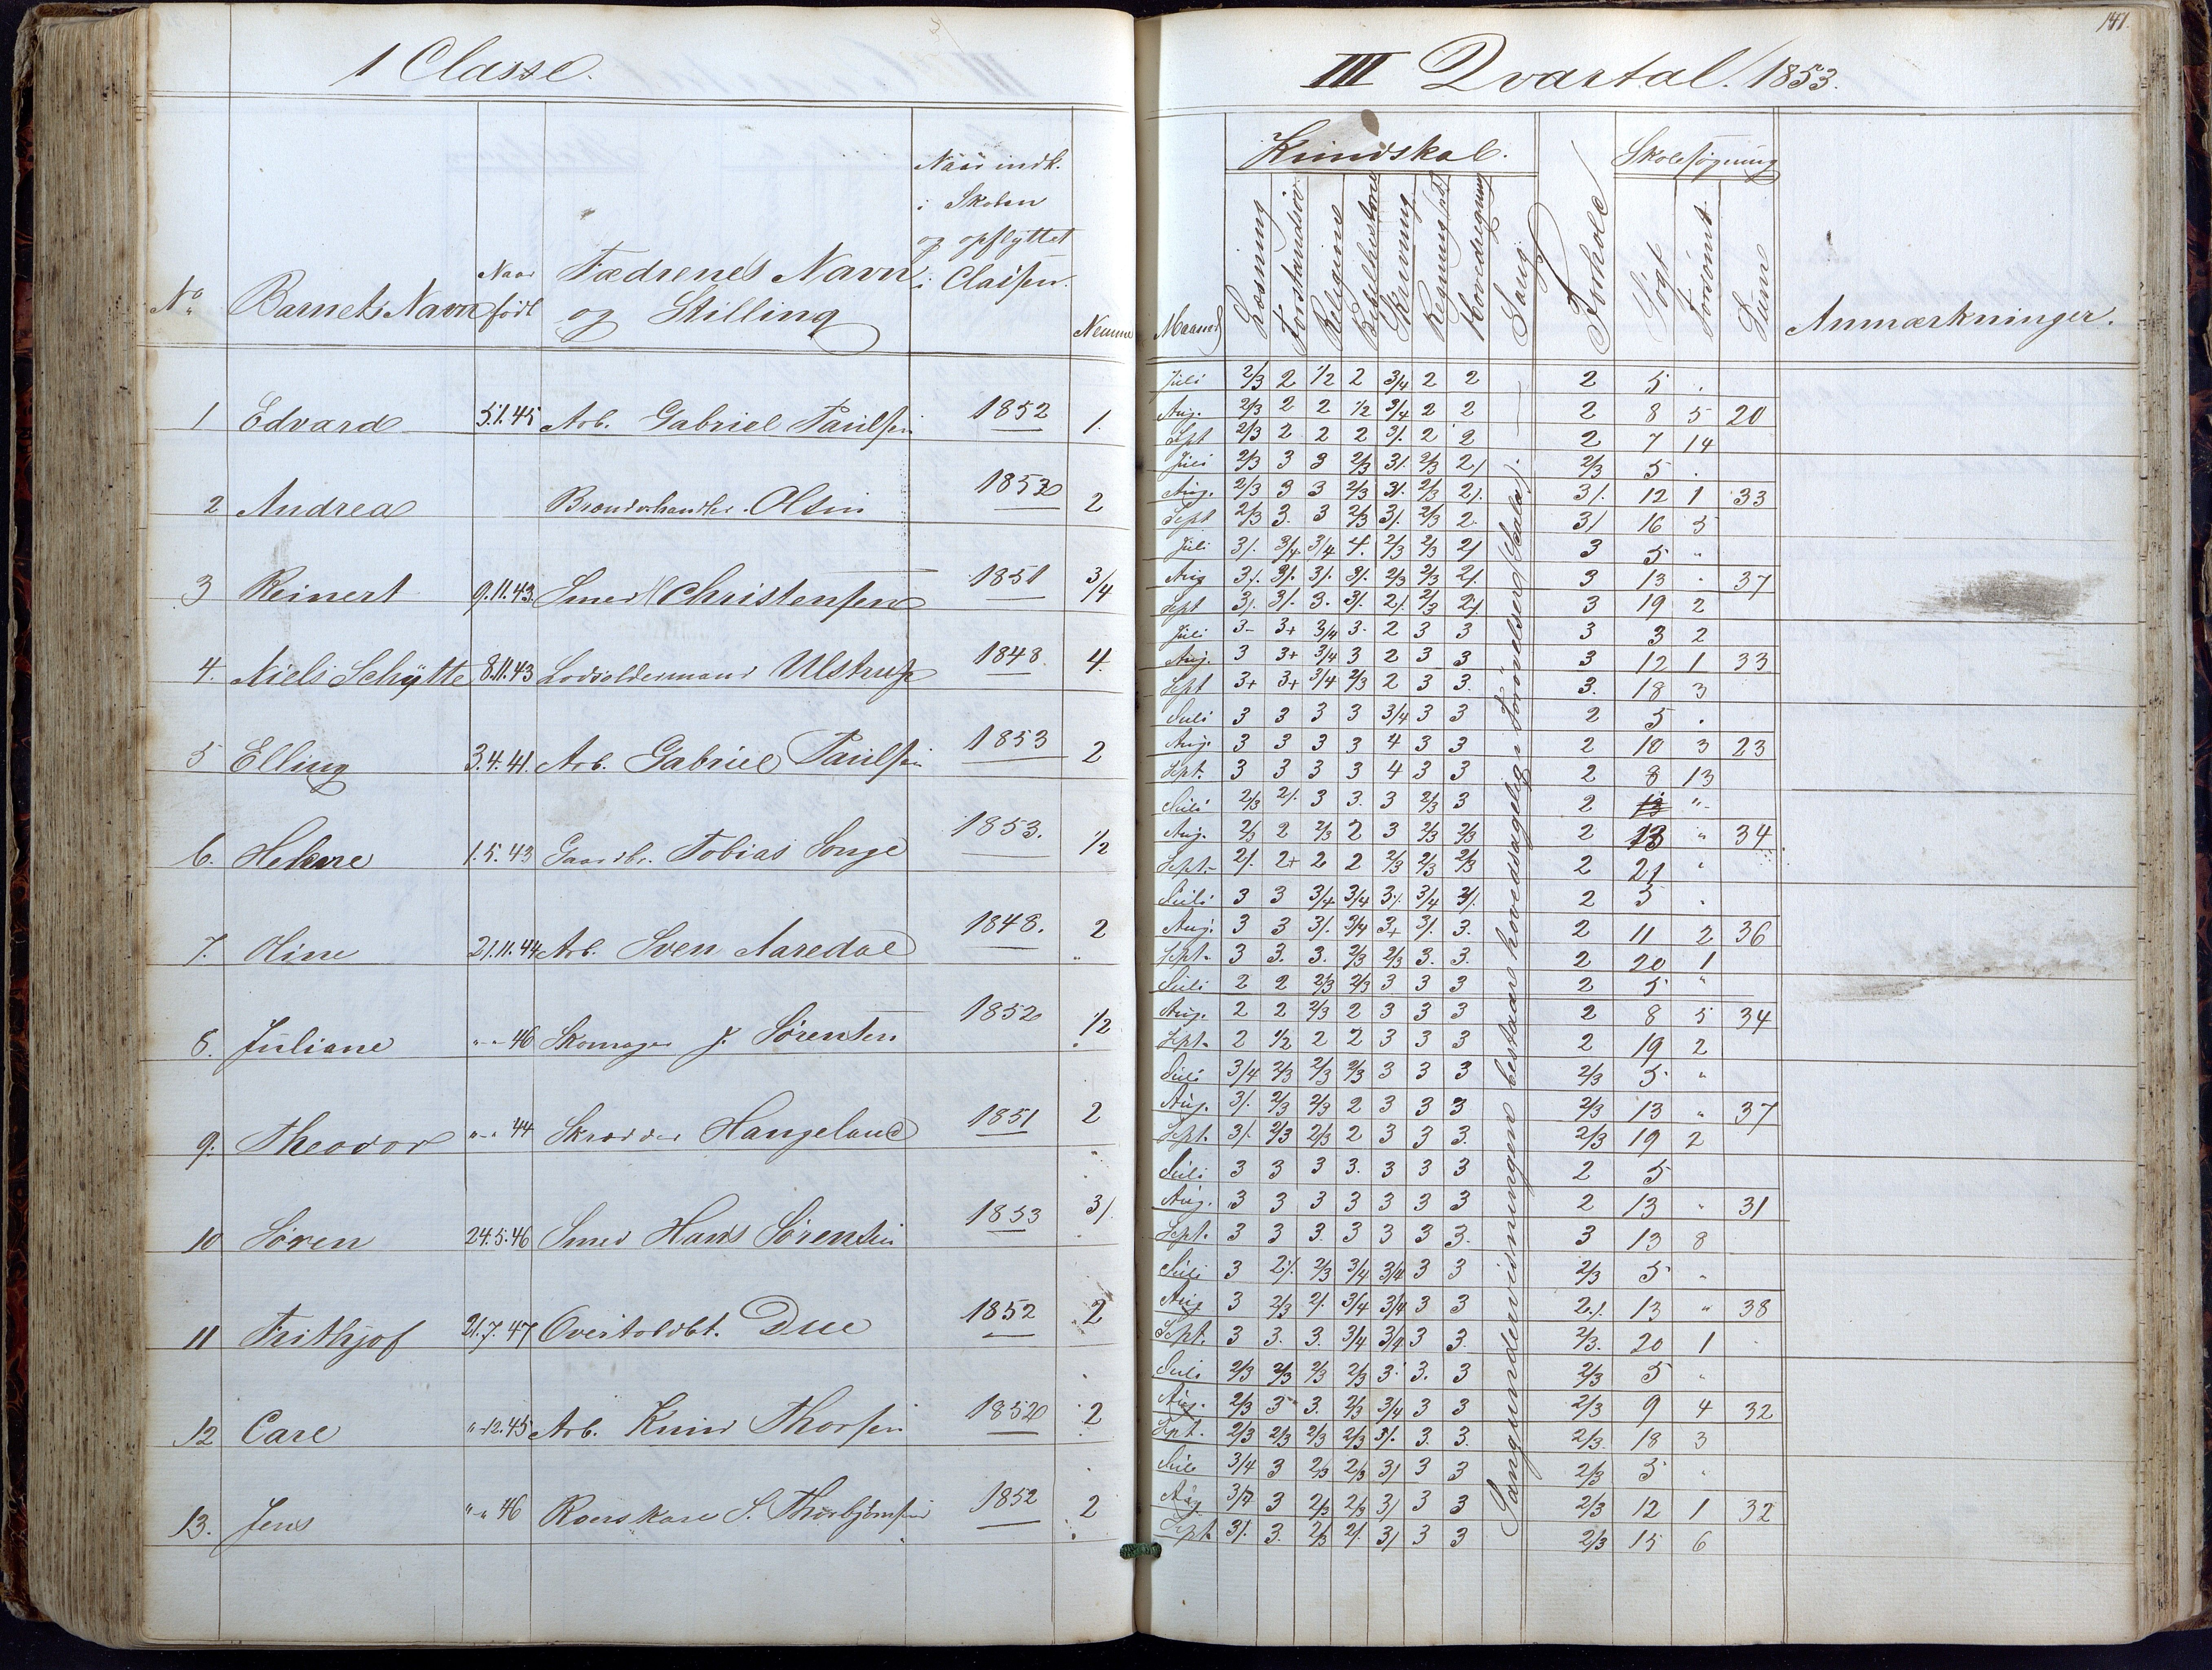 1 Classe.
No
Barnets Navn
Naar født
Fædrenes Navn og Stilling
Naar indk. i Skolen og opflyttet i Classen.
Nemme
1 Edvard 5.1.45 Arb. Gabriel Paulsen 1852 1.
2 Andrea Brændevhandler Olsen 1852 2
3 Reinert 9.11.43. Smed Christensen 1851 3/4
4. Niels Schytte 8.11.43 Lodsoldermand Ulstrup 1848 4.
5 Elling 3.4.41. Arb. Gabriel Paulsen 1853 2
6. Helene 1.5.43 Gaardbr. Tobias Songe 1853. 1/2
7. Oline 21.11.44 Arb. Sven Aaredal 1848. 2
8. Juliane " - " 46 Skomager J. Sørensen 1852 1/2
9. Theodor " - " 44 Skrædder Hangeland 1851 2
10 Søren 24.5.46 Smed Hans Sørensen 1853 3/.
11 Frithjof 21.7.47 Overtoldbt. Due 1852 2
12 Carl "-12.45 Arb. Knud Thorsen 1852 2
13. Jens " " 46 Roerskarl S. Thorbjørnsen 1852 2
141.
III Qvartal. 1853.
Maaned
Kundskab.
Læsning
Forstandsøv
Religion
Bibelhistorie
Skrivning
Regning
Hovedregning
Sang
Forhold
Skolesøgning
Søgt
Forsømt
Sum
Anmærkninger.
Juli 2/3 2 1/2 2 3/4 2 2 2 5 .
Aug. 2/3 2 2 1/2 3/4 2 2 2 8 5 20
Sept 2/3 2 2 2 3/. 2 2 2 7 14
Juli 2/3 3 3 2/3 3/. 2/3 2/ 2/3 5 .
Aug. 2/3 3 3 2/3 3/. 2/3 2/. 3/. 12 1 33
Sept 2/3 3. 3 2/3 3/. 2/3 2. 3/ 16 5
Juli 3/. 3/4 3/4 4. 2/3 2/3 2/ 3 5 "
Aug 3/. 3/. 3/. 3/. 2/3 2/3 2/. 3 13 . 37
Sept 3/. 3/. 3. 3/. 2/. 2/3 2/. 3 19 2
Juli 3- 3+ 3/4 3. 2 3 3 3 3 2
Aug. 3 3+ 3/4 3 2 3 3 3 12 1 33
Sept 3+ 3+ 3/4 2/3 2 3 3. 3. 18 3
Juli 3 3 3 3 3/4 3 3 2 5 .
Aug. 3 3 3 3 4 3 3 2 10 3 23
Sept. 3 3 3 3 4 3 3 2 8 13
Juli 2/3 2/. 3 3. 3 2/3 3 2 "
Aug. 2/3 2 2/3 2 3 2/3 2/3 2 13 " 34
Sept. 2/. 2+ 2 2 2/3 2/3 2/3 2 21 "
Juli 3 3 3/4 3/4 3/. 3/4 3/. 2 5 .
Aug. 3 3 3/. 3/4 3+ 3/. 3. 2 11 2 36
Sept. 3 3. 3. 2/3 2/3 3. 3. 2 20 1
Juli 2 2 2/3 2/3 3 3 3 2 5 "
Aug. 2 2 2/3 2 3 3 3 2 8 5 34
Sept. 2 1/2 2 2 3 3 3 2 19 2
Juli 3/4 2/3 2/3 2/3 3 3 3 2/3 5 "
Aug. 3/. 2/3 2/3 2 3 3 3 2/3 13 " 37
Sept. 3/. 2/3 2/3 2 3 3 3. 2/3 19 2
Juli 3 3 3 3. 3 3 3 2 5
Aug. 3 3 3 3 3 3 3 2 13 " 31
Sept. 3 3 3. 3 3 3 3. 3 13 8
Juli 3 2/. 2/3 3/4 3/4 3 3 2/3 5 "
Aug 3 2/3 2/. 3/4 3/4 3 3 2/. 13 " 38
Sept. 3 3. 3. 3/4 3/4 3 3. 2/3. 20 1
Juli 2/3 2/3 2/3 2/3 3. 3. 3 2/3 5 "
Aug. 2/3 3 3. 2/3 3/4 3 3 2/3 9 4 32
Sept. 2/3 2/3 2/3 2/3 3/. 3. 3. 2/3. 18 3
Juli 3/4 3 2/3 2/3 3/ 3 3 2/3 5 "
Aug 3/4 3 2/3 2/3 3/ 3 3 2/3 12 1 32
Sept. 3/. 3. 2/3 2/. 3/ 3 3 2/3 15 6
Sangundervisningen bestaar hovedsagelig i Forøvelser (Scala).